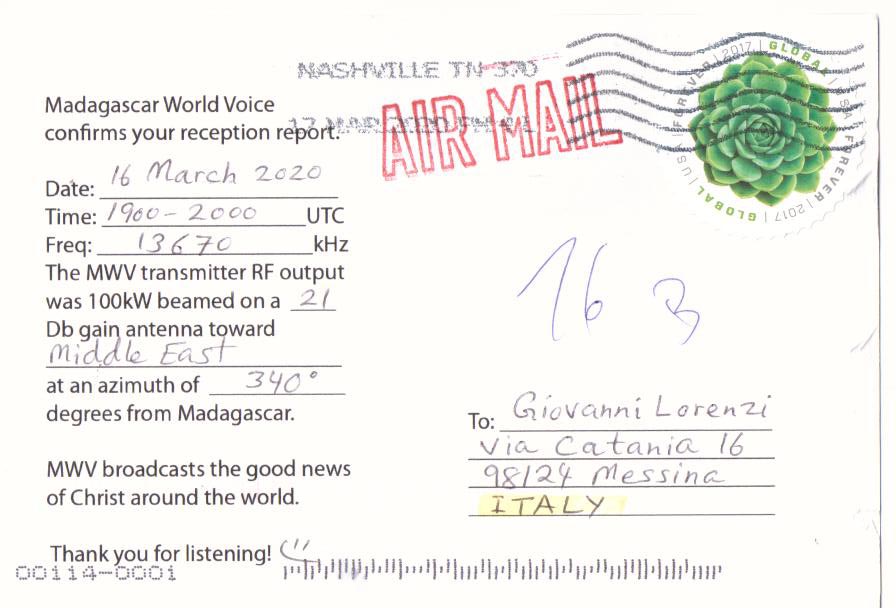 NASHVILLE TN 370
AIR MAIL
GLOBAL | USA FOREVER | 2017 | GLOBAL | US FOREVER | 2017 |
Madagascar World Voice
confirms your reception report:
Date: 16 March 2020
Time: 1900-2000 UTC
Freq: 13670 kHz
The MWV transmitter RF output
was 100kW beamed on a 21
Db gain antenna toward
Middle East
at an azimuth of 340°
degrees from Madagascar.
MWV broadcasts the good news
of Christ around the world.
Thank you for listening!
00114-0001
16 B
To: Giovanni Lorenzi
Via Catania 16
98124 Messina
ITALY